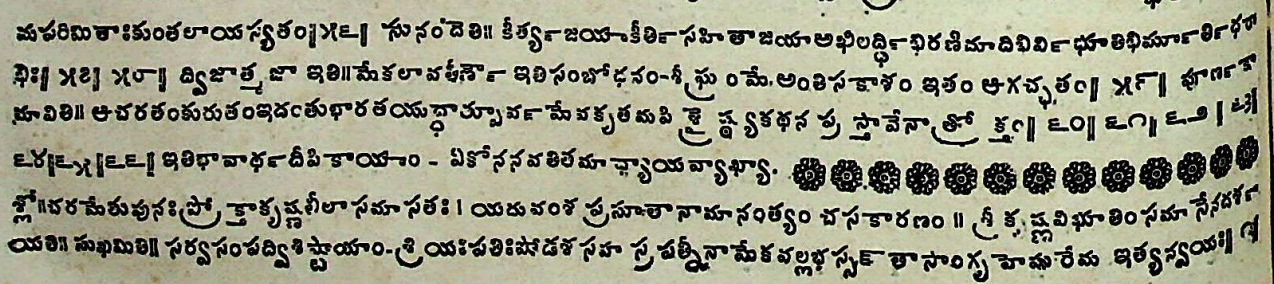 మపరిమితాఃకుంతలాయస్యతం॥౫౬॥ సునందేతి॥ కీర్త్యజయాకీర్తిసహితాజయాఅఖిలర్ద్ధిభిరణిమాదిభిర్విభూతిభిర్మూర్తిధరా
భిః॥ ౫౭॥ ౫౮॥ ద్విజాత్మజా ఇతి॥ మేకలావతీర్ణౌ ఇతిసంబోధనం-శీఘ్రం మే. అంతిసకాశం ఇతం ఆగచ్ఛతం॥ ౫౯॥ పూర్ణకా
మావితి॥ ఆచరతంకురుతంఇదంతుభారతయుద్ధాత్పూర్వమేవకృతమపి శ్రైష్ఠ్యకథన ప్రస్తావేనాత్రోక్తం॥ ౬౦॥ ౬౧॥ ౬౨॥ ౬౩॥
౬౪॥౬౫॥౬౬॥ ఇతిభావార్థదీపికాయాం - ఏకోననవతితమాధ్యాయవ్యాఖ్యా.
శ్లో॥చరమేతుపునఃప్రోక్తాకృష్ణలీలాసమాసతః। యదువంశ ప్రసూతానామానంత్యం చసకారణం॥ శ్రీకృష్ణవిభూతింసమాసేనదర్శ
యతి॥ సుఖమితి॥ సర్వసంపద్విశిష్టాయాం-శ్రియఃపతిఃషోడశసహస్రపత్నీనామేకవల్లభస్సన్ తాసాంగృహేషురేమ ఇత్యన్వయః॥ ౧॥